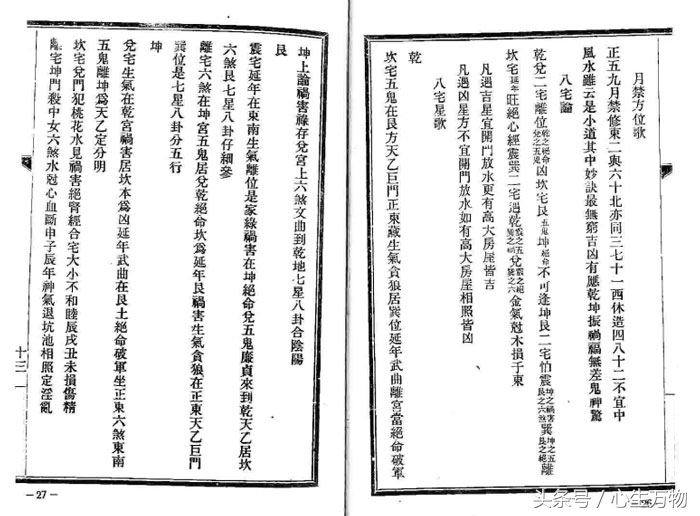 月禁方位歌
正五九月禁修東二與六十北亦同三七十一西休造四八十二不宜中
風水雖云是小道其中妙訣最無窮吉凶有應乾坤振禍福無差鬼神驚
八宅論
乾兌二宅離位乾之絕命兌之五鬼凶坎宅艮五鬼坤絕命不可逢坤艮二宅怕震坤之禍害艮之六煞巽坤之五鬼艮之絕命離
坎宅延年旺絕心經震巽二宅遇乾震之五鬼巽之禍害兌震之絕命巽之六煞金氣尅木損于東
凡遇吉星宜開門放水更有高大房屋皆吉
凡遇凶星方不宜開門放水如有高大房屋相照皆凶
八宅星歌
乾
坎宅五鬼在艮方天乙巨門正東藏生氣貪狼居巽位延年武曲離宮當絕命破軍
坤上論禍害祿存兌宮上六煞文曲到乾地七星八卦合陰陽
艮
震宅延年在東南生氣離位是家綠禍害在坤絕命兌五鬼廉貞來到乾天乙居坎
六煞艮七星八卦仔細參
離宅六煞在坤宮五鬼居兌乾絕命坎為延年艮禍害生氣貪狼在正東天乙巨門
巽位是七星八卦分五行
坤
兌宅生氣在乾宮禍害居坎本為凶延年武曲在艮土絕命破軍坐正東六煞東南
五鬼離坤為天乙定分明
坎宅兌門犯桃花水見禍害絕腎經合宅大小不和睦辰戌丑未損傷精
離宅坤門殺中女六煞水尅心血斷申子辰年神氣退坑池相照定淫亂
十三
—27—
头条号／心生万物